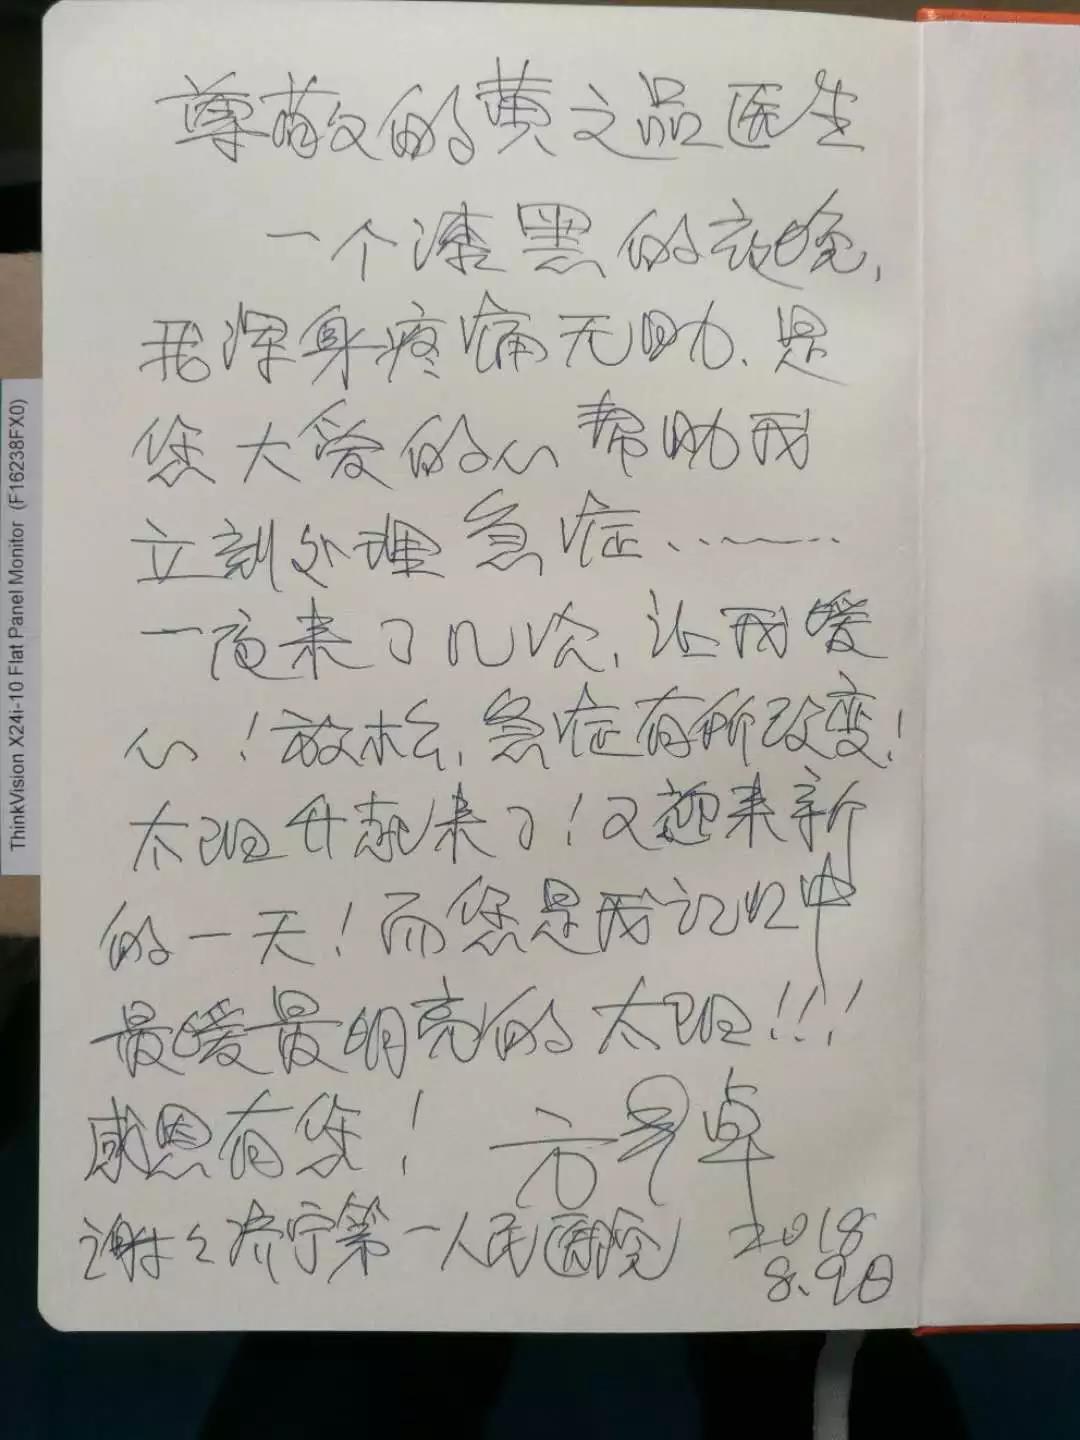 尊敬的黄文品医生
一个漆黑的夜晚,
我浑身疼痛无助、是
您大爱的心帮助我
立刻处理急症、……
一夜来了几次,让我暖
心!放松,急症有所改变!
太阳升起来了!又迎来新
的一天!而您是我记忆中
最暖最明亮的太阳!!!
感恩有您!
卓
谢谢济宁第一人民医院
2018
8、9日
ThinkVision X24i-10 Flat Panel Monitor (F16238FX0)